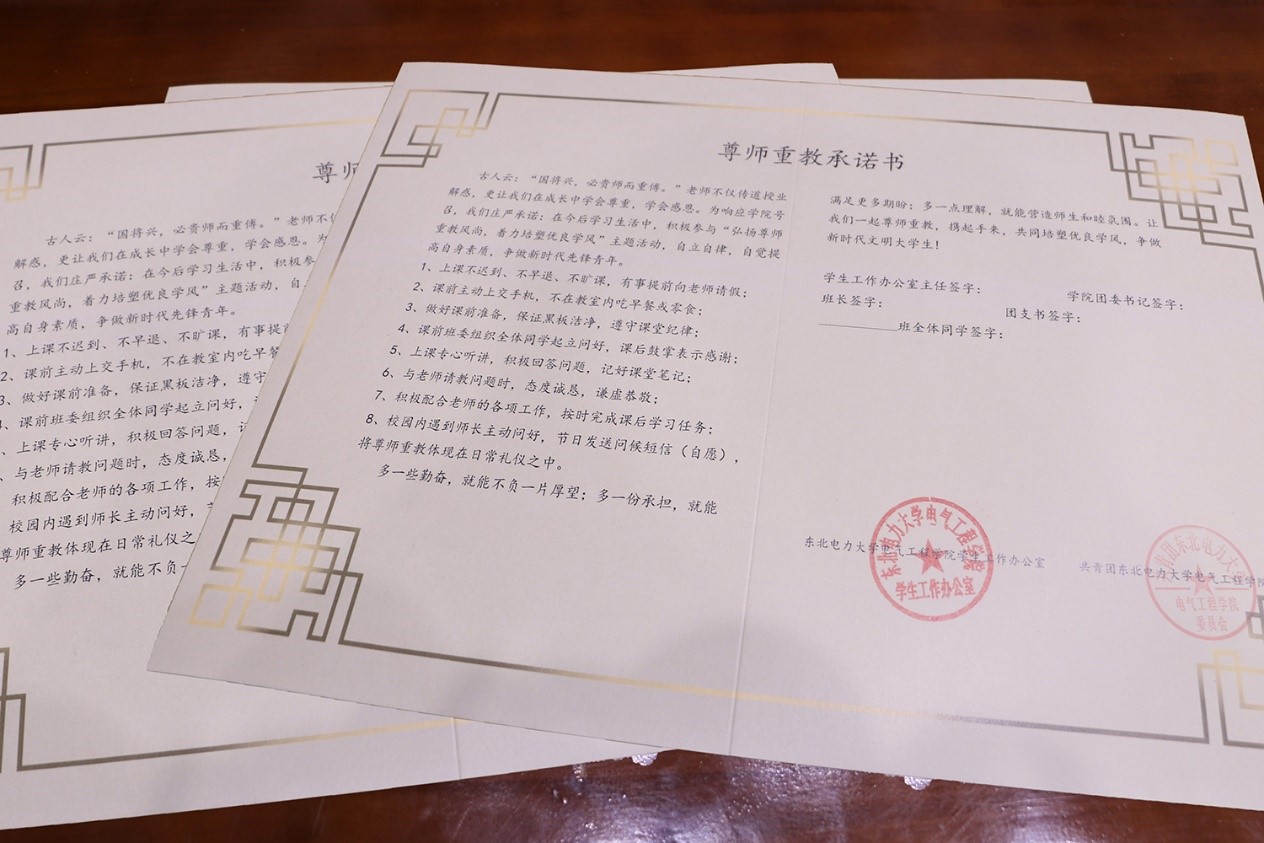 尊师重教承诺书
古人云：“国将兴，必贵师而重傅。”老师不仅传道授业
解惑，更让我们在成长中学会尊重，学会感恩。为响应学院号
召，我们庄严承诺：在今后学习生活中，积极参与“弘扬尊师
重教风尚，着力培塑优良学风”主题活动，自立自律，自觉提
高自身素质，争做新时代先锋青年。
1、上课不迟到、不早退、不旷课，有事提前向老师请假；
2、课前主动上交手机，不在教室内吃早餐或零食；
3、做好课前准备，保证黑板洁净，遵守课堂纪律；
4、课前班委组织全体同学起立问好，课后鼓掌表示感谢；
5、上课专心听讲，积极回答问题，记好课堂笔记；
6、与老师请教问题时，态度诚恳，谦虚恭敬；
7、积极配合老师的各项工作，按时完成课后学习任务；
8、校园内遇到师长主动问好，节日发送问候短信（自愿），
将尊师重教体现在日常礼仪之中。
多一些勤奋，就能不负一片厚望；多一份承担，就能
满足更多期盼；多一点理解，就能营造师生和睦氛围。让
我们一起尊师重教，携起手来，共同培塑优良学风，争做
新时代文明大学生！
学生工作办公室主任签字：
学院团委书记签字：
班长签字：
团支书签字：
班全体同学签字：
东北电力大学电气工程学院学生工作办公室
共青团东北电力大学电气工程学院
东北电力大学电气工程学院
学生工作办公室
共青团东北电力大
电气工程学院
委员会
尊师
古人云：“国将兴，必贵师而重傅。”老师不
解惑，更让我们在成长中学会尊重，学会感恩。为
召，我们庄严承诺：在今后学习生活中，积极参
重教风尚，着力培塑优良学风”主题活动，自
高自身素质，争做新时代先锋青年。
1、上课不迟到、不早退、不旷课，有事提前
2、课前主动上交手机，不在教室内吃早餐
3、做好课前准备，保证黑板洁净，遵守
、课前班委组织全体同学起立问好，
、上课专心听讲，积极回答问题，
、与老师请教问题时，态度诚恳，
积极配合老师的各项工作，按
校园内遇到师长主动问好，
尊师重教体现在日常礼仪之
多一些勤奋，就能不负一